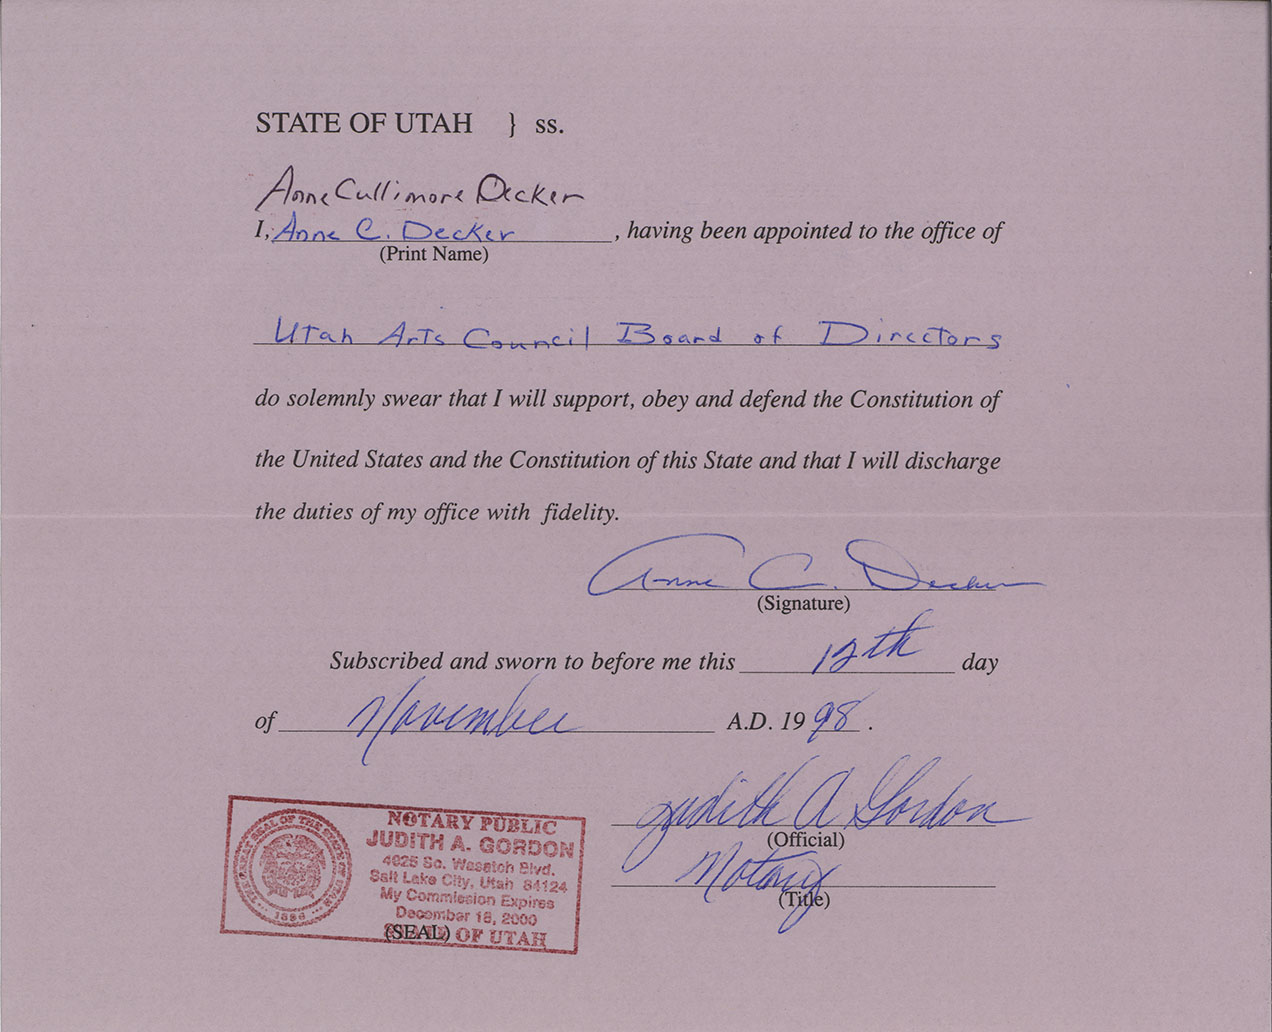 STATE OF UTAH } ss.
Anne Cullimore Decker
I, Anne C. Decker, having been appointed to the office of
(Print Name)
Utah Arts Council Board of Directors
do solemnly swear that I will support, obey and defend the Constitution of
the United States and the Constitution of this State and that I will discharge
the duties of my office with fidelity.
Anne C. Decker
(Signature)
Subscribed and sworn to before me this 12th day
of November A.D. 1998.
Judith A Gordon
(Official)
Notary
(Title)
THE GREAT SEAL OF THE STATE OF UTAH
1896
NOTARY PUBLIC
JUDITH A. GORDON
4025 So. Wasatch Blvd.
Salt Lake City, Utah 84124
My Commission Expires
December 18, 2000
STATE OF UTAH
(SEAL)